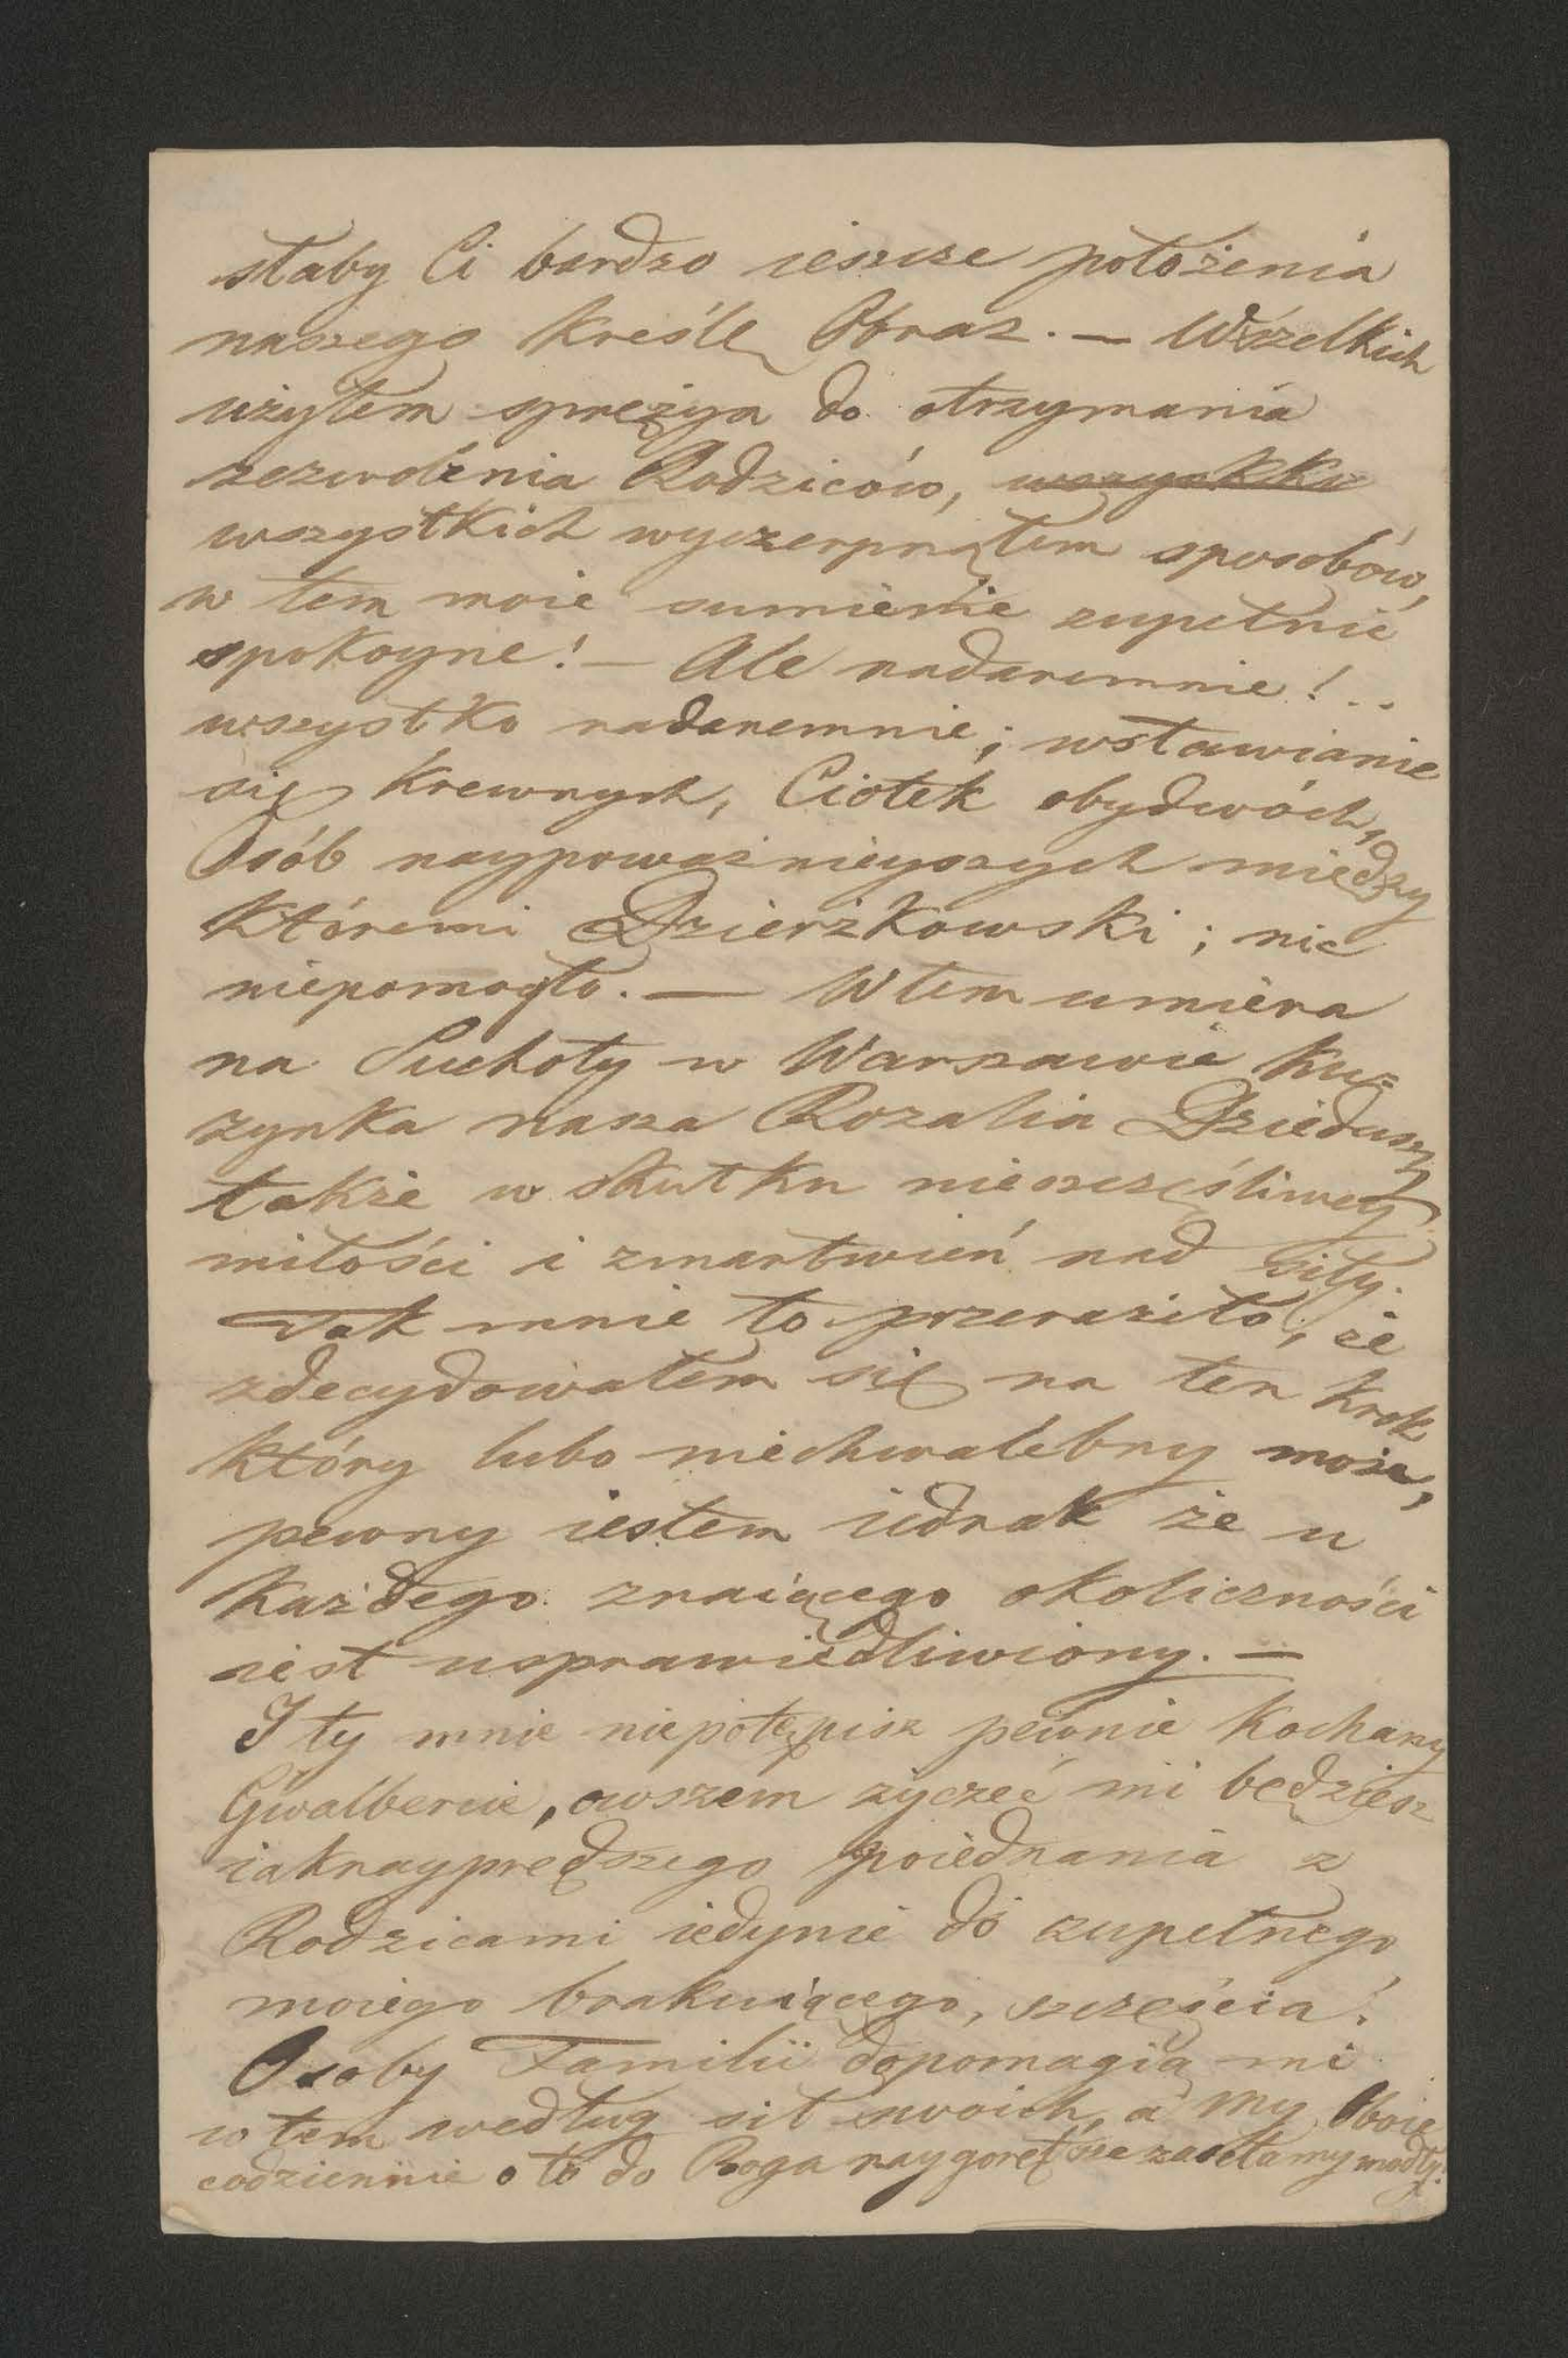 słaby Ci bardzo ieszcze położenia
naszego kreślę Obraz. — Wszelkich
użyłem sprężyn do otrzymania
zezwolenia Rodziców, wszystko
wszystkich wyczerpnąłem sposobów,
w tem moie sumienie zupełnie
spokoyne! — Ale nadaremnie!..
wszystko nadaremnie; wstawianie
się Krewnych, Ciotek obydwóch,
Osób naypoważnieyszych między
któremi Dzierzkowski; nic
niepomogło. — Wtem umiera
na Suchoty w Warszawie Ku=
zynka nasza Rozalia Dziedusz.
także w skutku nieszczęśliwey
miłości i zmartwień nad siły.
Tak mnie to przeraziło, że
zdecydowałem się na ten krok
który lubo niechwalebny może,
pewny iestem iednak że u
każdego znaiącego okoliczności
iest usprawiedliwiony. —
I ty mnie niepotępisz pewnie Kochany
Gwalbercie, owszem życzeć mi będziesz
iaknayprędszego poiednania z
Rodzicami iedynie do zupełnego
moiego brakuiącego, szczęścia.
Osoby Familii dopomagią mi
w tem według sił swoich, a My Oboie
codziennie o to do Boga naygorętsze zasełamy modły.